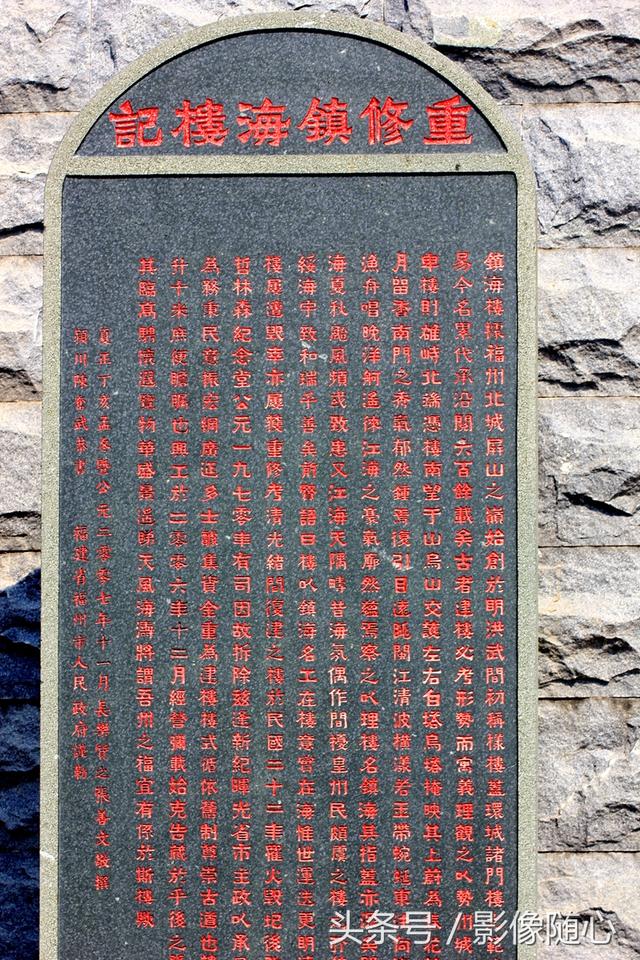 重修鎮海樓記
鎮海樓據福州北城屏山之巔始創於明洪武間初稱樣樓蓋環城諸門樓
易今名累代承沿閱六百餘載矣古者建樓必考形勢而寓義理觀之以勢州城
樓則雄峙北端憑樓南望于山烏山交護左右白塔烏塔掩映其上蔚為
月留香南門之秀氣郁然鍾焉復引目遠眺閩江清波橫漾若玉帶蜿蜒東
漁舟唱晚洋舸遙徐江海之豪氣廓然蘊焉察之以理樓名鎮海其指蓋亦
海夏秋颱風頻或致患又江海天隅疇昔海氛偶作間擾皇州民頗虞之樓
綏海宇致和瑞平善矣前瞽語曰樓以鎮海名工在樓意實在海惟世運迭更明
樓屢遭毀幸亦屢獲重修考清光緒間復建之樓於民國二十二年罹火毀圮後
哲林森紀念堂公元一九七零年有司因故拆除茲逢新紀暉光省市主政以承
為務秉民意振宏綱廣延多士醵集資金重為建樓樓式循依舊制尊崇古道也
升十米庶便瞻矚也興工於二零零六年十二月經營彌載始克告蕆於乎後之
其臨高騁懷遐覽物華盛景遙睇天風海濤將謂吾州之福宜有係於斯樓歟
夏正丁亥孟冬暨公元二零零七年十一月長樂賀之張善文敬撰
潁川陳奮武恭書 福建省福州市人民政府謹勒
头条号／影像随心